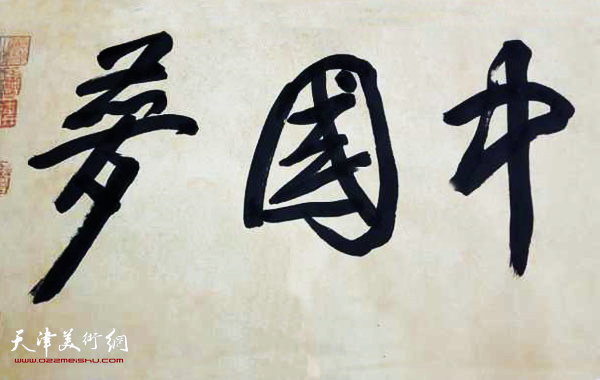 中國夢
天津美術網
www.022meishu.com